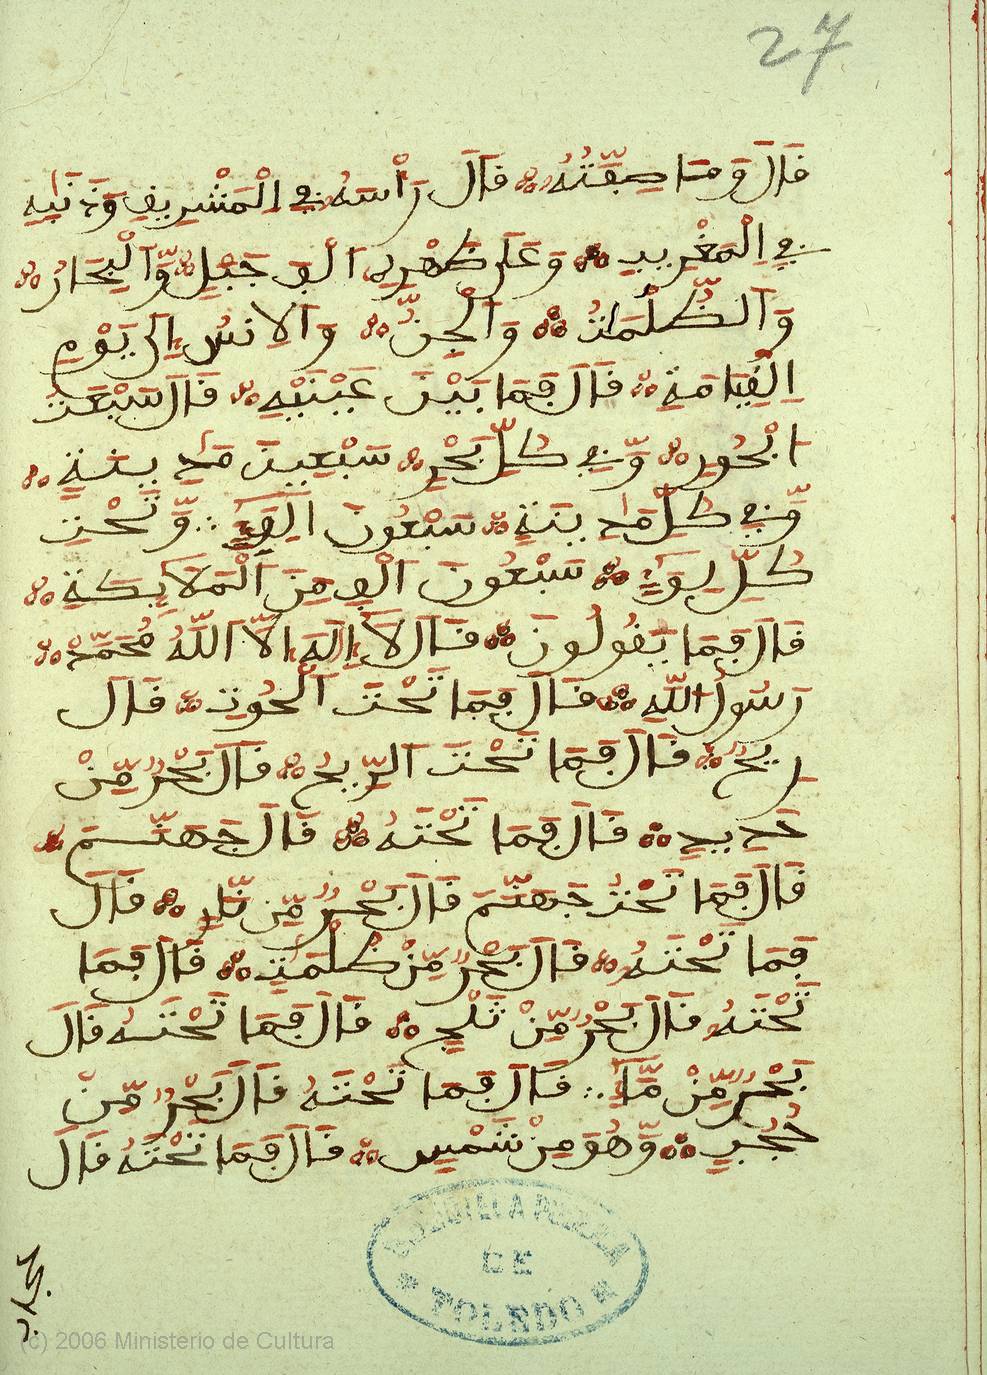 27
فَالَ وَمَا صِڢَّتُهُ فَالَ رَأْسَهُ ڢِے اِلْمَشْرِيفِ وَذَنَبِهِ
ڢِے اِلْمَغْرِيبِ وَعَلَى ظَهْرِهِ اَلْڢِ جَبْلٍ وَّاَلْبِحَارُ
وَاَلظُّلُمَاتُ وَاَلْجِنُّ وَاَلاِنسُ اِلَى يَوْمِ
اِلْفِيَامَةِ فَالَ ڢَمَا بَيْنَ عَيْنَيْهِ فَالَ سَبْعَتُ
اَبْحُورٍ وَّڢِے كُلِّ بَحْرٍ سَبْعِينَ مَدِينَةٍ
وَّڢِے كُلِّ مَدِينَةٍ سَبْعُونَ اَلِڢَ وَّتَحْتِ
كُلِّ سَبْعُونَ اَلْڢِ مِنَ اَلْمَلَايِكَةِ
فَالَ ڢَمَا يَفُولُونَ فَالَ لَا اِلَهَ اِلَّا اَللَّهُ مُحَمَّدٌ
رَسُولُ اَللَّهِ فَالَ ڢَمَا تَحْتَ اَلْحُوتِ فَالَ
رِيحٌ فَالَ ڢَمَا تَحْتَ اَلرِّيحُ فَالَ بَحْرٌ مِّنْ
حَدِيدٍ فَالَ ڢَمَا تَحْتَهُ فَالَ جَهَنَّمَ
فَالَ ڢَمَا تَحْتُ جَهَنَّمَ فَالَ بَحْرٌ مِّن نَّارٍ فَالَ
ڢَمَا تَحْتَهُ فَالَ بَحْرٌ مِّنْ ظُلْمَتٍ فَالَ ڢَمَا
تَحْتَهُ فَالَ بَحْرٌ مِّنْ ثَلْجٍ فَالَ ڢَمَا تَحْتَهُ فَالَ
بَحْرٌ مِّنْ مَّاءٍ فَالَ ڢَمَا تَحْتَهُ فَالَ بَحْرٌ مِّن
وَّهُوَ مِنْ شَمْسٍ فَالَ ڢَمَا تَحْتَهُ فَالَ
BIBLIOTECA PUBLICA
DE
TOLEDO
(c) 2006 Ministerio de Cultura